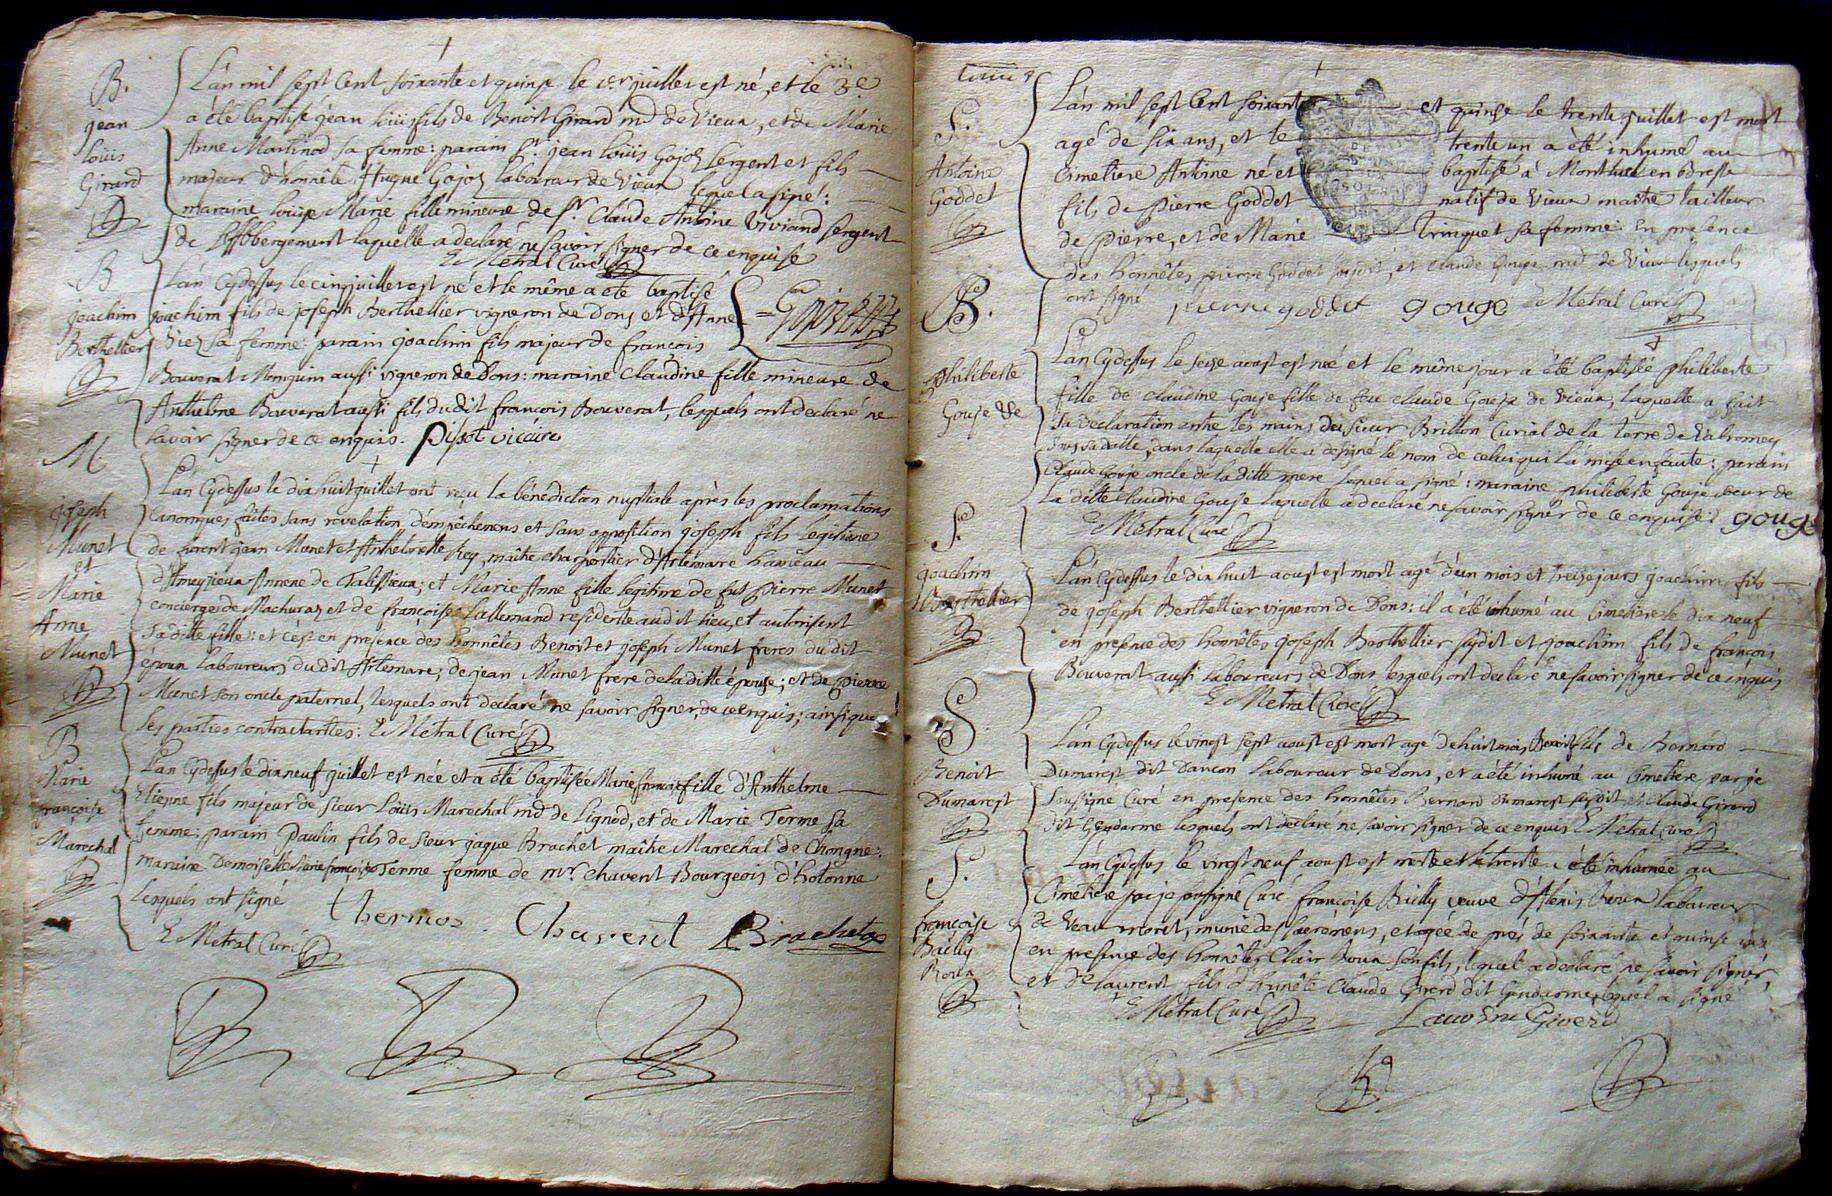 B.
jean
loüis
Girard
L'an mil sept Cent soixante et quinze le 1er juillet est né, et le 3e
a été baptisé jean loüis fils de Benoit Girard md de Vieux, et de Marie
Anne Martinod sa femme: parain Sr. jean loüis Gojoz sergent et fils
majeur d'honnête Hugue Gojoz laboureur de Vieux lequel a signé:
maraine loüise Marie fille mineure de Sr. Claude Antoine Viviand sergent
de laquelle a declaré ne savoir signer de ce enquise
E Metral Curé
B
joachim
Berthellier
L'an Cydessus le cinq juillet est né et le même a été baptisé
joachim fils de joseph Berthellier vigneron de Dons et d'Anne
Viez sa femme: parain joachim fils majeur de françois
Bouverat Monguin aussi vigneron de Dons: maraine Claudine fille mineure de
Anthelme Bouverat aussi fils dudit francois Bouverat, lesquels ont declaré ne
savoir signer de ce enquis. Pissot vicaire
M
joseph
Munet
et
Marie
Anne
Munet
L'an Cydessus le dix huit juillet ont reçu la bénédiction nuptiale après les proclamations
canoniques faites sans revelation d'empêchemens et sans opposition joseph fils legitime
de jean Munet et Anthelmette Rey, maitre charpentier d'Artemare hameau
d'Ameysieux Annexe de Talissieux; et Marie Anne fille legitime de fut Pierre Munet
concierge de Machuraz et de françoise Lallemand residente audit lieu, et autorisent
sa ditte fille: et c'est en présence des honnêtes Benoit et joseph Munet freres du dit
époux laboureurs du dit Artemare; de jean Munet frere de la ditte épouse; et de Pierre
Munet son oncle paternel, lesquels ont declaré ne savoir signer, de ce enquis; ainsi que
les parties contractantes: E Metral Curé
B
Marie
françoise
Marechal
L'an Cydessus le dix neuf juillet est née et a été baptisée Marie françoise fille d'Anthelme
Etienne fils majeur de sieur Loüis Marechal md de Lignod, et de Marie Terme sa
femme: parain Paulin fils de sieur jaque Brachet maitre Marechal de Chongne:
maraine Demoiselle Marie françoise Terme femme de mr. Chavent Bourgeois d'hotonne
lesquels ont signé
thermoz Chavent Brachet
E Metral Curé
S.
Antoine
Goddet
L'an mil sept Cent soixante et quinze le trente juillet est mort
agé de six ans, et le trente un a été inhumé au
Cimetiere Antoine né et baptisé à Montluel en bresse
fils de Pierre Goddet natif de Vieux maitre tailleur
de Pierre, et de Marie Trinquet sa femme: En presence
des honnêtes pierre Goddet susdit, et Claude Gouje md de Vieux lesquels
ont signé pierre goddet gouge E Metral Curé
B.
Philiberte
Gouje
L'an Cydessus le seize aoust est née et le même jour a été baptisée Philiberte
fille de Claudine Gouje fille de feu Claude Gouje de Vieux, laquelle a fait
sa declaration entre les mains du sieur Brillon Curial de la terre de Valromey
sous sa datte, dans laquelle elle a designé le nom de celui qui l'a mise enceinte: parain
Claude Gouje oncle de la ditte mere lequel a signé: maraine Philiberte Gouje soeur de
la ditte Claudine Gouje laquelle a declaré ne savoir signer de ce enquise: gouge
E Metral Curé
S.
joachim
Berthellier
L'an Cydessus le dix huit aoust est mort agé d'un mois et treize jours joachim fils
de joseph Berthellier vigneron de Dons: il a été inhumé au Cimetiere le dix neuf
en presence des honnêtes joseph Berthellier susdit et joachim fils de françois
Bouverat aussi laboureurs de Dons lesquels ont declaré ne savoir signer de ce enquis
E Metral Curé
S
Benoit
Dumarest
L'an Cydessus le vingt sept aoust est mort agé de huit mois Benoit fils de Bernard
Dumarest dit Dancon laboureur de Dons, et a été inhumé au Cimetiere par je
soussigné Curé en presence des honnêtes Bernard Dumarest susdit et Claude Girard
dit Gendarme lesquels ont declaré ne savoir signer de ce enquis E Metral Curé
S.
françoise
Bailly
Roux
L'an Cydessus le vingt neuf aoust est morte et le trente a été inhumée au
Cimetiere par je soussigné Curé françoise Bailly veuve d'Alexis Roux laboureur
de Veaumoret, munie des sacrémens, et agée de près de soixante et quinse ans
en presence des honnêtes Clair Roux son fils, lequel a declaré ne savoir signer,
et de laurent fils d'honnête Claude Girard dit Gendarme, lequel a signé
E Metral Curé Laurent Girerd